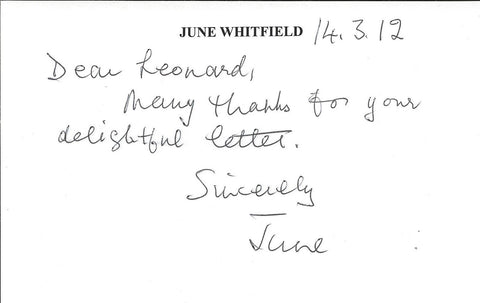 JUNE WHITFIELD 14.3.12
Dear Leonard,
Many thanks for your
delightful letter.
Sincerely
June